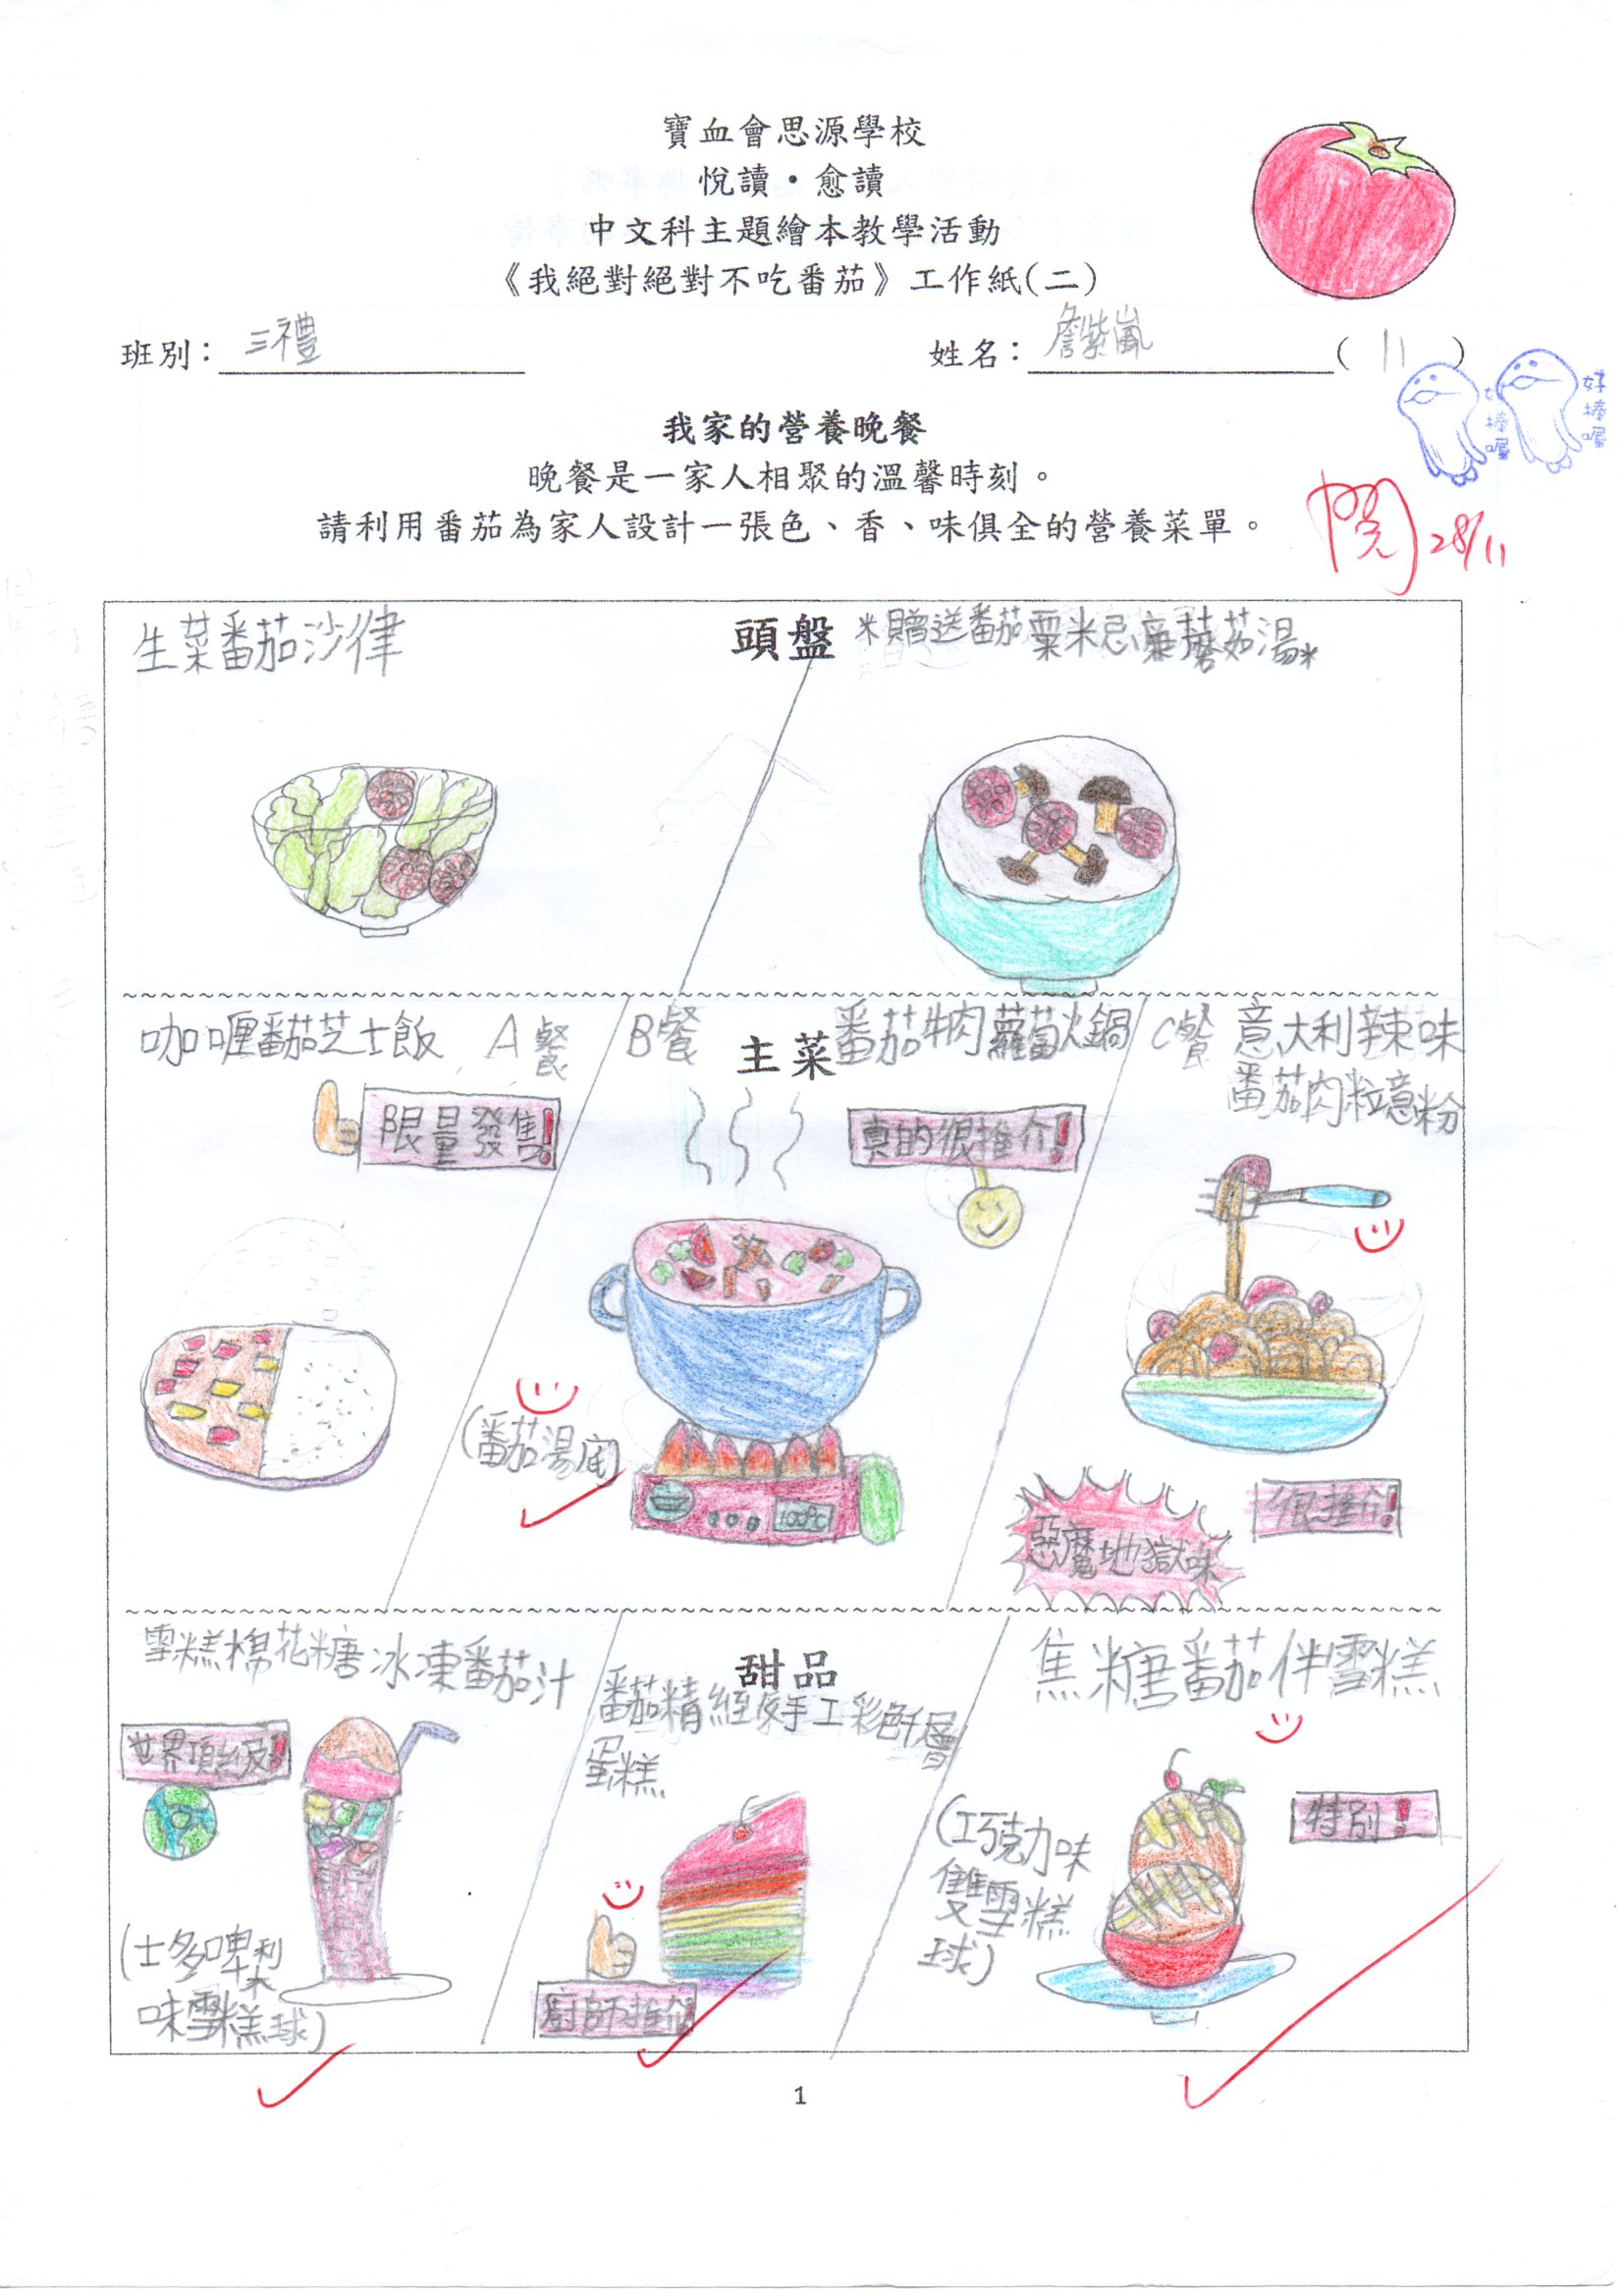 寶血會思源學校
悅讀•愈讀
中文科主題繪本教學活動
《我絕對絕對不吃番茄》工作紙(二)
班別：三禮 姓名：詹紫嵐 (11)
好棒喔 好棒喔
我家的營養晚餐
晚餐是一家人相聚的溫馨時刻。
請利用番茄為家人設計一張色、香、味俱全的營養菜單。
閱 28/11
頭盤
生菜番茄沙律
*贈送番茄粟米忌廉蘑茹湯*
主菜
咖喱番茄芝士飯 A餐
限量發售!
B餐 番茄牛肉蘿蔔火鍋
真的很推介!
(番茄湯底)
100°C
C餐 意大利辣味
番茄肉粒意粉
惡魔地獄味
很推介!
甜品
雪糕棉花糖冰凍番茄汁
世界頂級!
(士多啤梨
味雪糕球)
番茄精緻手工彩色千層
蛋糕
廚師推介!
焦糖番茄伴雪糕
(巧克力味
雙雪糕
球)
特別!
1